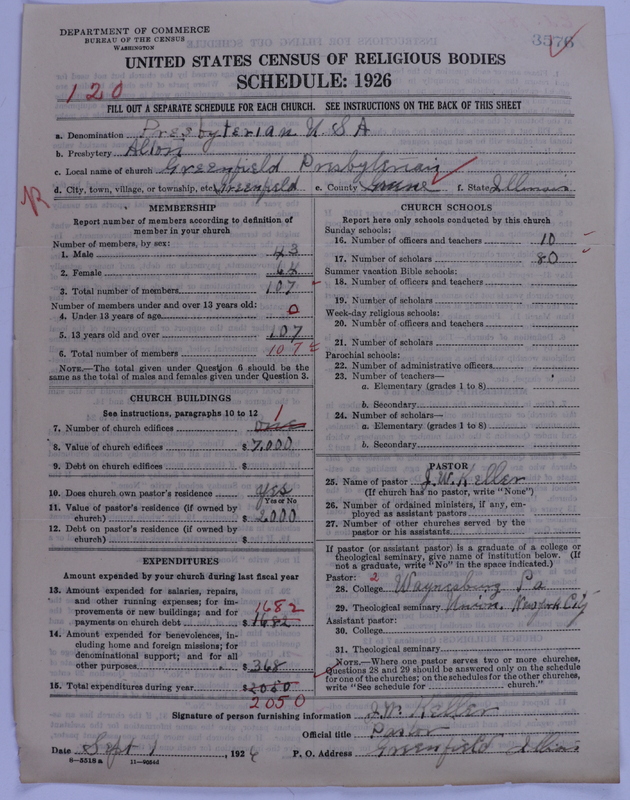 DEPARTMENT OF COMMERCE
BUREAU OF THE CENSUS
WASHINGTON
3576
UNITED STATES CENSUS OF RELIGIOUS BODIES
SCHEDULE: 1926
120
FILL OUT A SEPARATE SCHEDULE FOR EACH CHURCH. SEE INSTRUCTIONS ON THE BACK OF THIS SHEET
a. Denomination Presbyterian U.S.A
b. Presbytery Alton
c. Local name of church Greenfield Presbyterian
d. City, town, village, or township, etc. Greenfield e. County Greene f. State Illinois
MEMBERSHIP
Report number of members according to definition of member in your church
Number of members, by sex:
1. Male 43
2. Female 64
3. Total number of members 107
Number of members under and over 13 years old:
4. Under 13 years of age 0
5. 13 years old and over 107
6. Total number of members 107
NOTE.—The total given under Question 6 should be the
same as the total of males and females given under Question 3.
CHURCH BUILDINGS
See instructions, paragraphs 10 to 12
7. Number of church edifices one 1
8. Value of church edifices $ 7,000
9. Debt on church edifices $
10. Does church own pastor's residence Yes
Yes or No
11. Value of pastor's residence (if owned by
church) $ 2000
12. Debt on pastor's residence (if owned by
church) $
EXPENDITURES
Amount expended by your church during last fiscal year
13. Amount expended for salaries, repairs,
and other running expenses; for im-
provements or new buildings; and for
payments on church debt $ 1682
1682
14. Amount expended for benevolences, in-
cluding home and foreign missions; for
denominational support; and for all
other purposes $ 368
15. Total expenditures during year $ 2050
2050
CHURCH SCHOOLS
Report here only schools conducted by this church
Sunday schools:
16. Number of officers and teachers 10
17. Number of scholars 80
Summer vacation Bible schools:
18. Number of officers and teachers
19. Number of scholars
Week-day religious schools:
20. Number of officers and teachers
21. Number of scholars
Parochial schools:
22. Number of administrative officers
23. Number of teachers—
a. Elementary (grades 1 to 8)
b. Secondary
24. Number of scholars—
a. Elementary (grades 1 to 8)
b. Secondary
PASTOR
25. Name of pastor J. W. Keller
(If church has no pastor, write "None")
26. Number of ordained ministers, if any, em-
ployed as assistant pastors
27. Number of other churches served by the
pastor or his assistants
If pastor (or assistant pastor) is a graduate of a college or
theological seminary, give name of institution below. (If
not a graduate, write "No" in the space indicated.)
Pastor: 2
28. College Waynesburg Pa
29. Theological seminary Union. New York City
Assistant pastor:
30. College
31. Theological seminary
NOTE.—Where one pastor serves two or more churches,
Questions 28 and 29 should be answered only on the schedule
for one of the churches; on the schedules for the other churches,
write "See schedule for church."
Signature of person furnishing information J. W. Keller
Official title Pastor
Date Sept 1 1926 P. O. Address Greenfield Illinois
8—5518 a